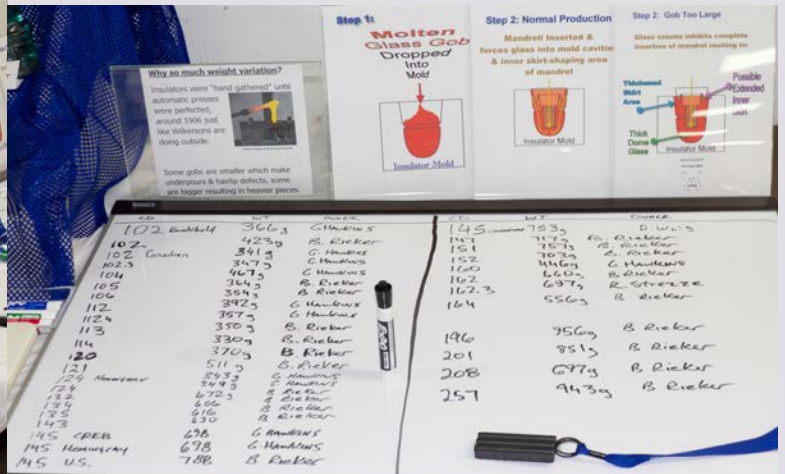 Why so much weight variation?
Insulators were "hand gathered" until
automatic presses
were perfected,
around 1906 just
like Wilkersons are
doing outside.
Some gobs are smaller which make
underpours & hairlip defects, some
are bigger resulting in heavier pieces.
Step 1:
Molten
Glass Gob
Dropped
Into
Mold
Insulator Mold
Step 2: Normal Production
Mandrell Inserted &
forces glass into mold cavitie
& inner skirt-shaping area
of mandrel
Insulator Mold
Step 2: Gob Too Large
Glass volume inhibits complete
insertion of mandrel reulting in:
Thickened
Skirt
Area
Possible
Extended
Inner
Thick
Dome
Glass
Insulator Mold
CD WT OWNER
102 366g G Hawkins
102 423g B. Rieker
102 Canadian 341g G. Hawkins
102.3 347g G Hawkins
104 467g G Hawkins
105 364g B. Rieker
106 354g B Rieker
112 392g G Hawkins
112.4 357g G Hawkins
113 350g B. Rieker
114 330g B. Rieker
120 370g B. Rieker
121 511g B. Rieker
124 Hemingray 343g G Hawkins
124 349g G Hawkins
132 672g B Rieker
134 606 B Rieker
135 616 B Rieker
143 630 B Rieker
145 CREB 698 G Hawkins
145 Hemingray 698 G. Hawkins
145 U.S. 788 B Rieker
CD WT OWNER
145 753g
147 717g B. Rieker
151 757g B. Rieker
152 703g B. Rieker
160 446g G Hawkins
162 660g B Rieker
162.3 697g R Streeze
164 556g B Rieker
196 956g B Rieker
201 851g B Rieker
208 697g B Rieker
257 943g B Rieker
EXPO